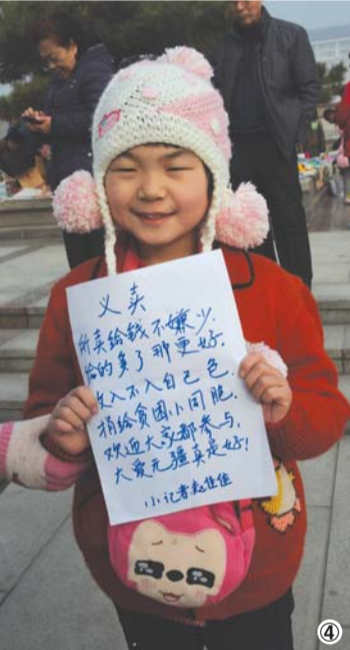 义卖
所卖给钱不嫌少,
给的多了那更好.
收入不入自己包,
捐给贫困小同胞.
欢迎大家都参与,
大爱无疆真是好!
小记者赵佳佳
④